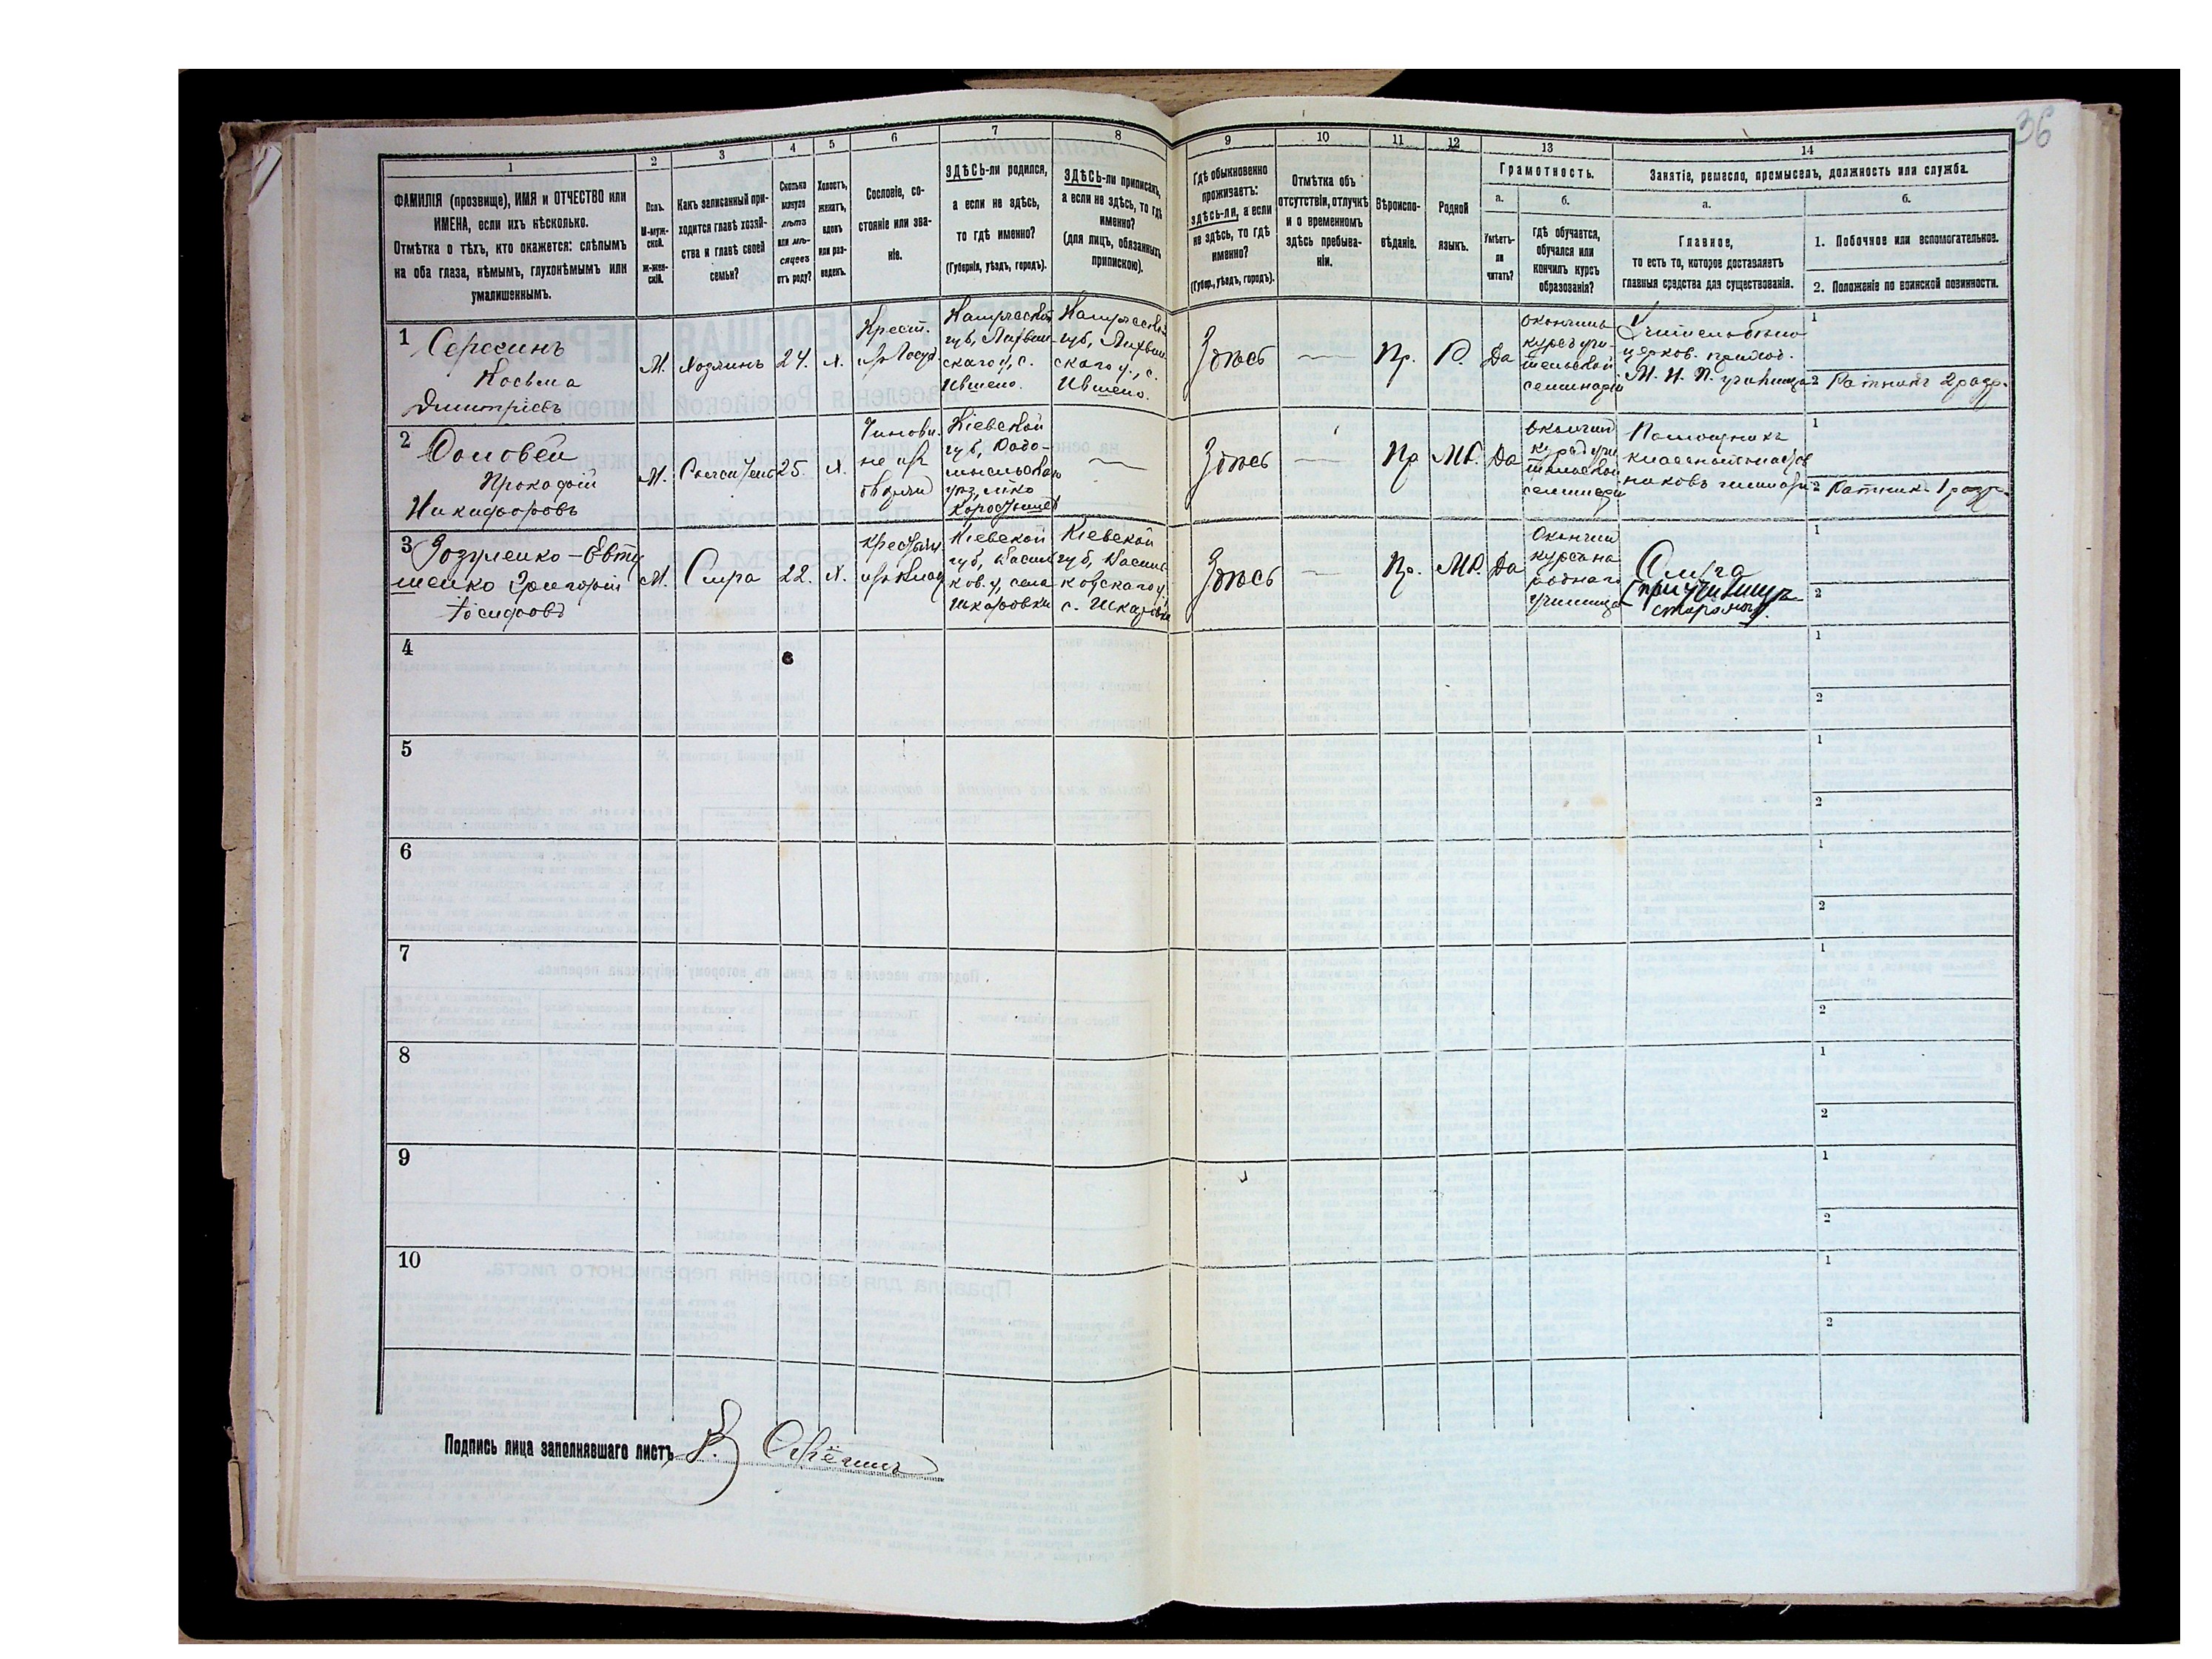 36
1
2
3
4
5
6
7
8
9
10
11
12
13
14
ФАМИЛІЯ (прозвище), ИМЯ и ОТЧЕСТВО или
ИМЕНА, если ихъ нѣсколько.
Отмѣтка о тѣхъ, кто окажется: слѣпымъ
на оба глаза, нѣмымъ, глухонѣмымъ или
умалишеннымъ.
Полъ.
М-муж-
ской.
Ж-жен-
скій.
Какъ записанный при-
ходится главѣ хозяй-
ства и главѣ своей
семьи?
Сколько
минуло
лѣтъ
или мѣ-
сяцевъ
отъ роду?
Холостъ,
женатъ,
вдовъ
или раз-
веденъ.
Сословіе, со-
стояніе или зва-
ніе.
ЗДѢСЬ-ли родился,
а если не здѣсь,
то гдѣ именно?
(Губернія, уѣздъ, городъ).
ЗДѢСЬ-ли приписанъ,
а если не здѣсь, то гдѣ
именно?
(для лицъ, обязанныхъ
припискою).
Гдѣ обыкновенно
проживаетъ:
здѣсь-ли, а если
не здѣсь, то гдѣ
именно?
(Губер., уѣздъ, городъ).
Отмѣтка объ
отсутствіи, отлучкѣ
и о временномъ
здѣсь пребыва-
ніи.
Вѣроиспо-
вѣданіе.
Родной
языкъ.
Грамотность.
а.
б.
Умѣетъ-
ли
читать?
Гдѣ обучается,
обучался или
кончилъ курсъ
образованія?
Занятіе, ремесло, промыселъ, должность или служба.
а.
б.
Главное,
то есть то, которое доставляетъ
главныя средства для существованія.
1. Побочное или вспомогательное.
2. Положеніе по воинской повинности.
1
Косьма
Дмитріевъ
М.
Хозяинъ
24.
Х.
Крест.
губ,
скаго у, с.
губ,
скаго у., с.
Здѣсь
—
Пр.
Р.
Да
окончилъ
курсъ учи-
тельской
семинаріи
церков. приход.
М. Н. П. училища
1
2 Ратникъ 2 разр.
2
Соловей
Прокофій
Никифоровъ
М.
25.
Х.
Чиновн.
не изъ
дворянъ
Кіевской
губ, Радо-
мысльскаго
Коростышев
—
Здѣсь
—
Пр
МР.
Да
окончил
курсъ учи
тельской
семинаріи
Помощникъ
1
2 Ратник. 1 разр.
3
Зозуленко-Евту
шенко Григорій
Іосифовъ
М.
Слуга
22.
Х.
Крестьян
Кіевской
губ, Васил
ков. у, села
Шкаровки
Кіевской
губ, Васил-
ковскаго у.
с. Шкаровки
Здѣсь
—
Пр.
МР.
Да
Окончил
курсъ на
роднаго
училища
Слуга
(при училищѣ
сторожъ).
1
2
4
1
2
5
1
2
6
1
2
7
1
2
8
1
2
9
1
2
10
1
2
Подпись лица заполнявшаго листъ